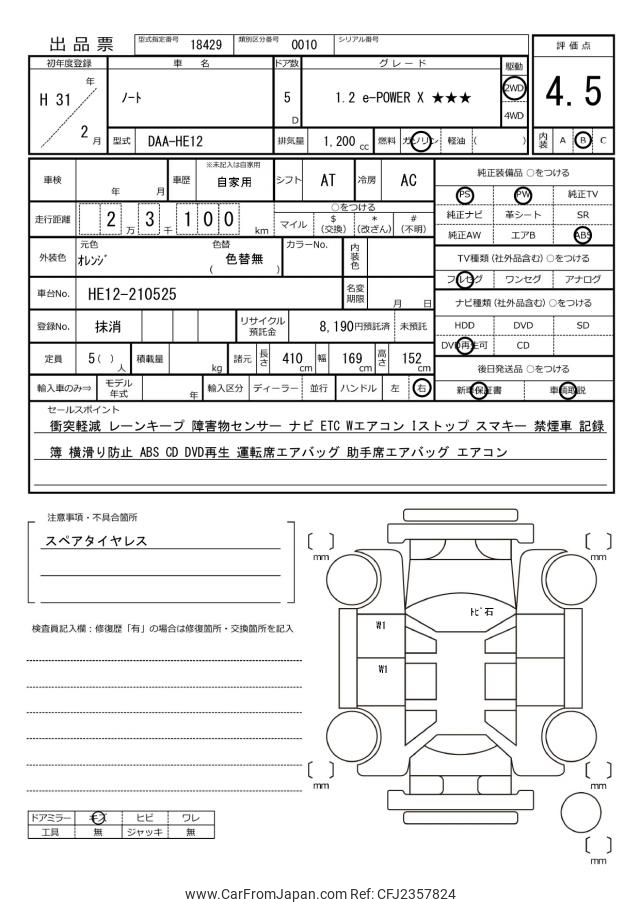 出品票
型式指定番号 18429 類別区分番号 0010 シリアル番号
評価点
初年度登録 車名 ドア数 グレード 駆動
H 31 年 2 月
ノート 5 D 1.2 e-POWER X ★★★
2WD
4WD
4.5
型式 DAA-HE12 排気量 1,200 cc 燃料 ガソリン 軽油 ( )
内装 A B C
車検 年 月 車歴 ※未記入は自家用 自家用 シフト AT 冷房 AC
純正装備品 ○をつける
PS PW 純正TV
純正ナビ 革シート SR
純正AW エアB ABS
走行距離 2 万 3 千 1 0 0 km
○をつける
マイル $ (交換) * (改ざん) # (不明)
外装色 元色 オレンジ 色替 ( 色替無 ) カラーNo. 内装色
TV種類(社外品含む) ○をつける
フルセグ ワンセグ アナログ
車台No. HE12-210525 名変期限 月 日
ナビ種類(社外品含む) ○をつける
HDD DVD SD
DVD再生可 CD
登録No. 抹消 リサイクル預託金 8,190円預託済 未預託
定員 5( ) 人 積載量 kg 諸元 長さ 410 cm 幅 169 cm 高さ 152 cm
後日発送品 ○をつける
新車保証書 車輌取説
輸入車のみ⇒ モデル年式 年 輸入区分 ディーラー 並行 ハンドル 左 右
セールスポイント
衝突軽減 レーンキープ 障害物センサー ナビ ETC Wエアコン Iストップ スマキー 禁煙車 記録
簿 横滑り防止 ABS CD DVD再生 運転席エアバッグ 助手席エアバッグ エアコン
注意事項・不具合箇所
スペアタイヤレス
検査員記入欄：修復歴「有」の場合は修復箇所・交換箇所を記入
mm
mm
トビ石
W1
W1
mm
mm
mm
ドアミラー キズ ヒビ ワレ
工具 無 ジャッキ 無
www.CarFromJapan.com Ref: CFJ2357824